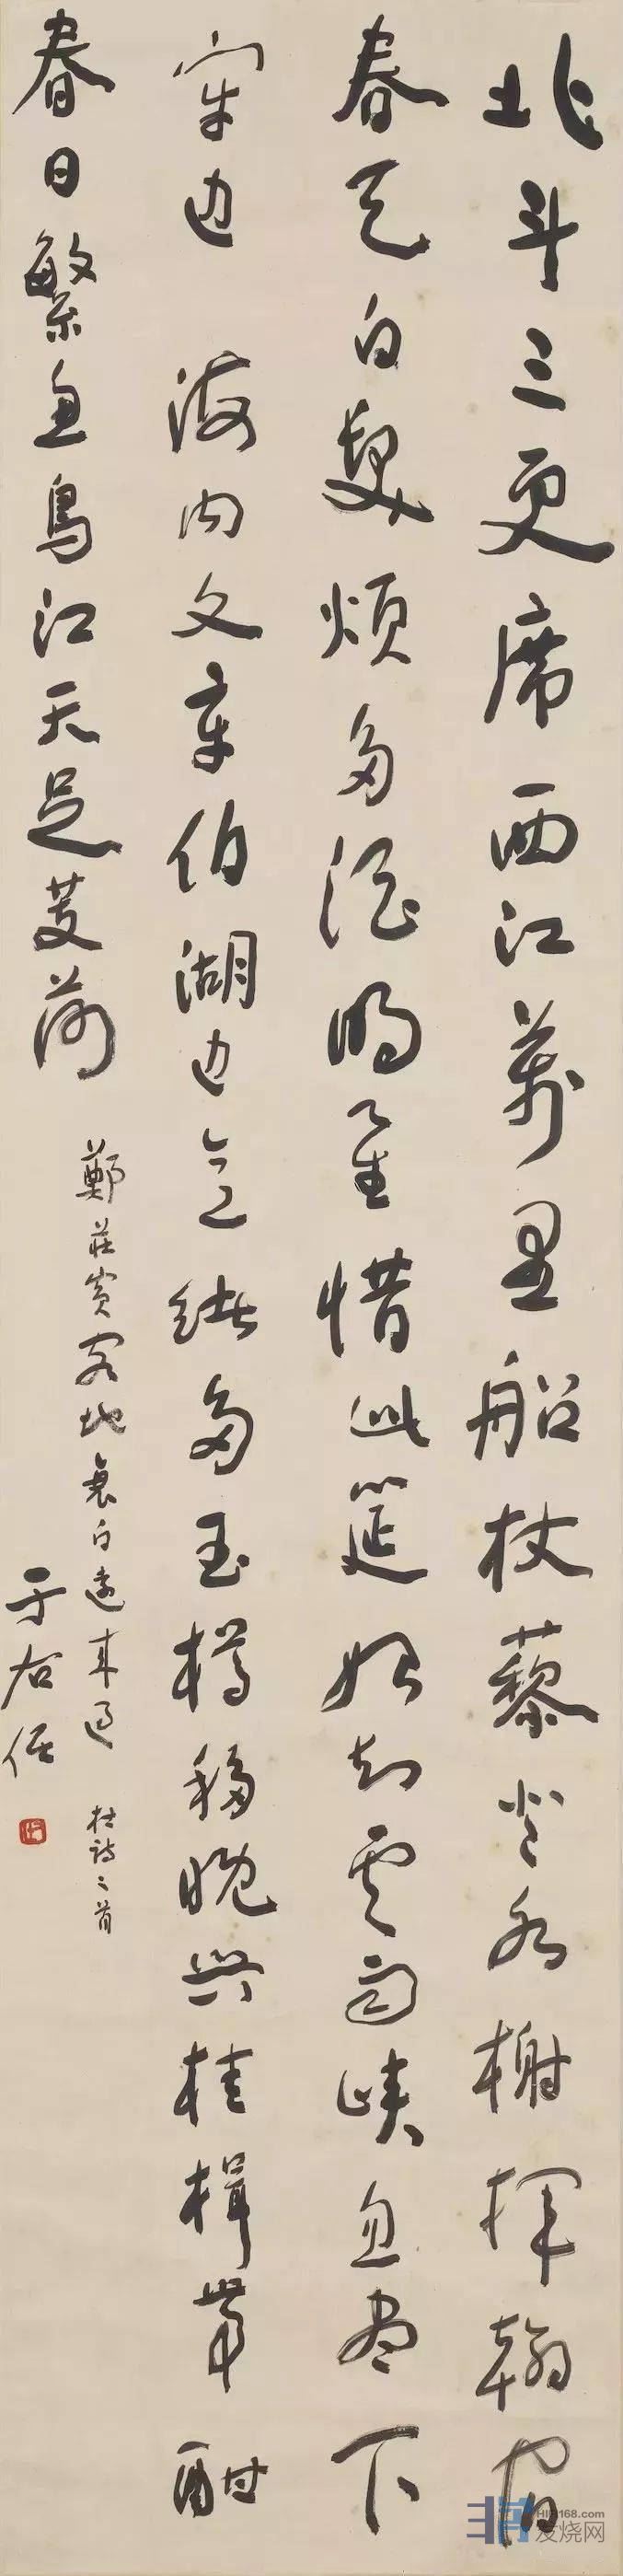 北斗三更席西江萬里船杖藜登水榭揮翰宿
春天白髮煩多酒明星惜此筵始知雲雨峽忽盡下
牢邊 海內文章伯湖邊意緒多玉樽移晚興桂楫帶酣
春日繁魚鳥江天足芰荷
鄭莊賓客地衰白遠來過 杜詩二首
于右任
HIFI168.com
发烧网